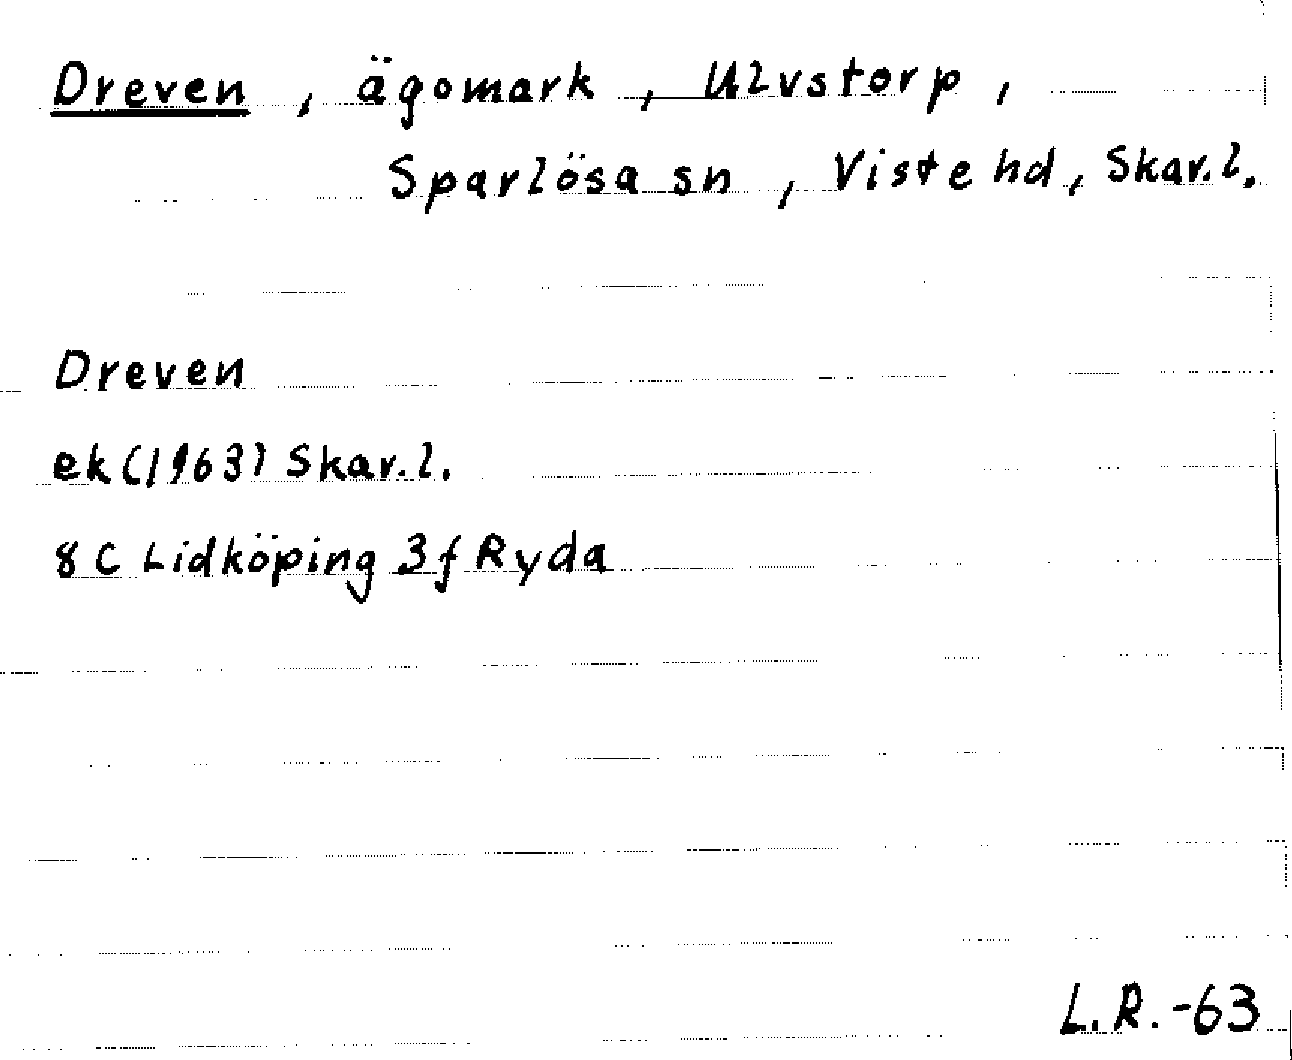 Dreven, ägomark, Ulvstorp,
Sparlösa sn, Viste hd, Skar.l.
Dreven
ek (1963) Skar.l.
8 C Lidköping 3f Ryda
L.R.-63